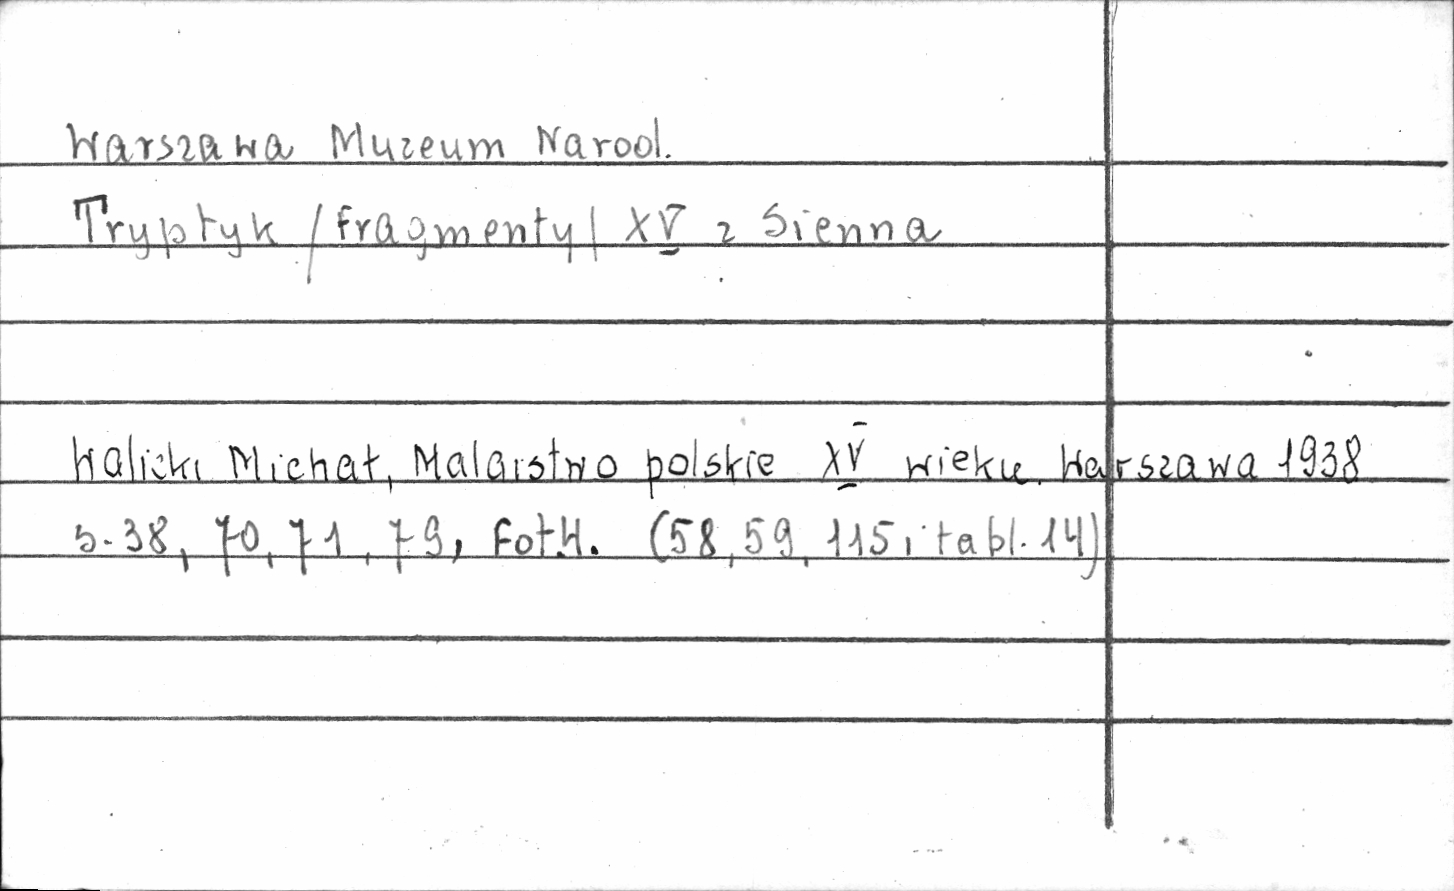 Warszawa Muzeum Narod.
Tryptyk /fragmenty/ XV z Sienna
Walicki Michał, Malarstwo polskie XV wieku. Warszawa 1938
s. 38, 70, 71, 79, Fot. (58, 59, 115 i tabl. 14)